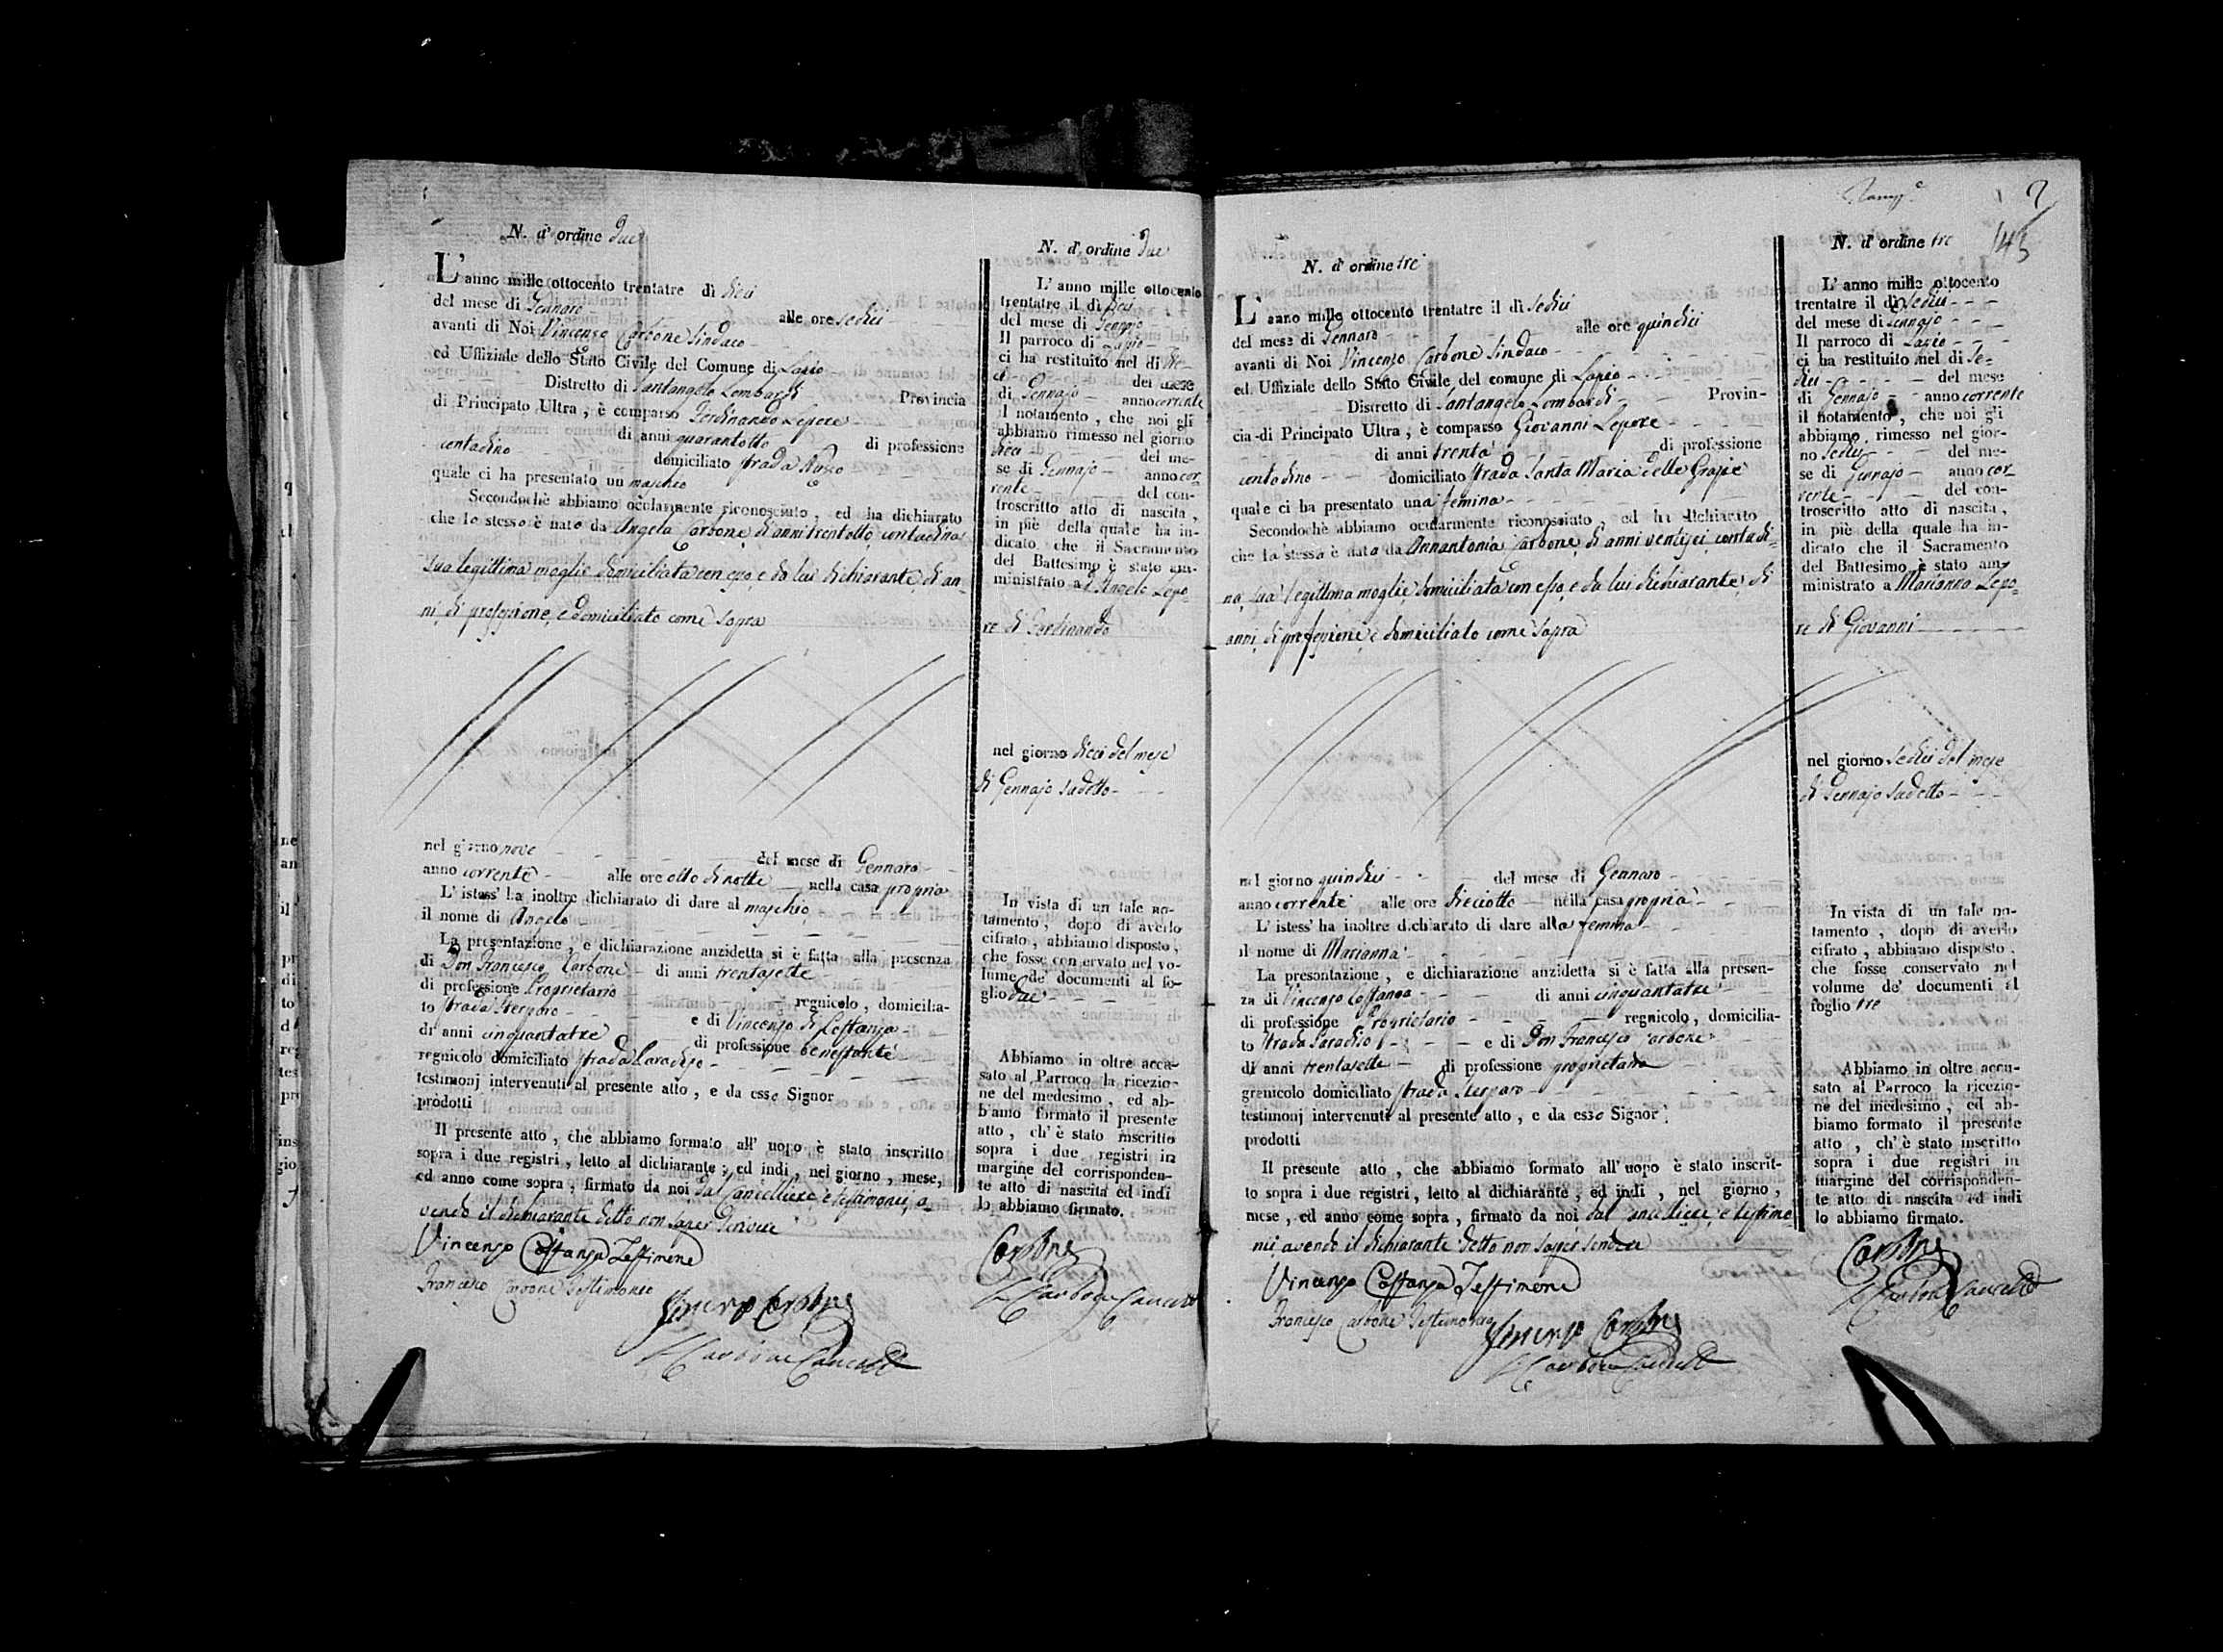 N. d' ordine Due
L' anno mille ottocento trentatre dì dieci
del mese di Gennaro alle ore sedici
avanti di Noi Vincenzo Carbone Sindaco
ed Uffiziale dello Stato Civile del Comune di Lapio
Distretto di Santangelo Lombardi Provincia
di Principato Ultra, è comparso Ferdinando Lepore
di anni quarantotto di professione
contadino domiciliato strada
quale ci ha presentato un maschio
Secondochè abbiamo ocularmente riconosciuto, ed ha dichiarato
che lo stesso è nato da Angela Carbone, di anni trentotto, contadina
sua legittima moglie domiciliata con esso, e da lui dichiarante, di an-
ni, di professione, e domiciliato come sopra
nel giorno nove del mese di Gennaro
anno corrente alle ore otto di notte nella casa propria
L' istess' ha inoltre dichiarato di dare al maschio
il nome di Angelo
La presentazione, e dichiarazione anzidetta si è fatta alla presenza
di Don Francesco Carbone di anni trentasette
di professione Proprietario regnicolo, domicilia-
to strada e di Vincenzo di Costanza
di anni cinquantatre di professione benestante
regnicolo domiciliato strada Paradiso
testimonj intervenuti al presente atto, e da esso Signor
prodotti
Il presente atto, che abbiamo formato all' uopo è stato inscritto
sopra i due registri, letto al dichiarante; ed indi, nel giorno, mese,
ed anno come sopra, firmato da noi dal Cancelliere, e testimonii, a-
vendo il dichiarante detto non saper scrivere
Vincenzo Costanza Testimone
Francesco Carbone Testimonio
Vincenzo Carbone
Carbone Cancell
N. d' ordine Due
L' anno mille ottocento
trentatre il dì dieci
del mese di Gennajo
Il parroco di Lapio
ci ha restituito nel dì die-
ci del mese
di Gennajo anno corrente
il notamento, che noi gli
abbiamo rimesso nel giorno
dieci del me-
se di Gennajo anno cor-
rente del con-
troscritto atto di nascita,
in piè della quale ha in-
dicato che il Sacramento
del Battesimo è stato am-
ministrato a Angelo Lepo-
re di Ferdinando
nel giorno dieci del mese
di Gennajo sudetto
In vista di un tale no-
tamento, dopo di averlo
cifrato, abbiamo disposto,
che fosse conservato nel vo-
lume de' documenti al fo-
glio due
Abbiamo in oltre accu-
sato al Parroco la ricezio-
ne del medesimo, ed ab-
biamo formato il presente
atto, ch' è stato inscritto
sopra i due registri in
margine del corrisponden-
te atto di nascita ed indi
lo abbiamo firmato.
Carbone
Carbone Cancell
2
145
N. d' ordine tre
L' anno mille ottocento trentatre il dì sedici
del mese di Gennaro alle ore quindici
avanti di Noi Vincenzo Carbone Sindaco
ed Uffiziale dello Stato Civile del comune di Lapio
Distretto di Santangelo Lombardi Provin-
cia di Principato Ultra, è comparso Giovanni Lepore
di anni trenta di professione
contadino domiciliato strada Santa Maria delle Grazie
quale ci ha presentato una femina
Secondochè abbiamo ocularmente riconosciuto, ed ha dichiarato
che la stessa è nata da Annantonia Carbone, di anni ventisei, contadi-
na, sua legittima moglie, domiciliata con esso, e da lui dichiarante, di
anni, di professione, e domiciliato come sopra
nel giorno quindici del mese di Gennaro
anno corrente alle ore dieciotto nella casa propria
L' istess' ha inoltre dichiarato di dare alla femina
il nome di Marianna
La presentazione, e dichiarazione anzidetta si è fatta alla presen-
za di Vincenzo Costanza di anni cinquantatre
di professione Proprietario regnicolo, domicilia-
to strada Paradiso e di Don Francesco Carbone
di anni trentasette di professione proprietario
grenicolo domiciliato strada
testimonj intervenuti al presente atto, e da esso Signor
prodotti
Il presente atto, che abbiamo formato all' uopo è stato inscrit-
to sopra i due registri, letto al dichiarante, ed indi, nel giorno,
mese, ed anno come sopra, firmato da noi dal Cancelliere, e testimo-
nii, avendo il dichiarante detto non saper scrivere
Vincenzo Costanza Testimone
Francesco Carbone Testimonio
Vincenzo Carbone
Carbone Cancell
N. d' ordine tre
L' anno mille ottocento
trentatre il dì sedici
del mese di Gennajo
Il parroco di Lapio
ci ha restituito nel dì se-
dici del mese
di Gennajo anno corrente
il notamento, che noi gli
abbiamo rimesso nel gior-
no sedici del me-
se di Gennajo anno cor-
rente del con-
troscritto atto di nascita,
in piè della quale ha in-
dicato che il Sacramento
del Battesimo è stato am-
ministrato a Marianna Lepo-
re di Giovanni
nel giorno sedici del mese
di Gennajo sudetto
In vista di un tale no-
tamento, dopo di averlo
cifrato, abbiamo disposto,
che fosse conservato nel
volume de' documenti al
foglio tre
Abbiamo in oltre accu-
sato al Parroco la ricezio-
ne del medesimo, ed ab-
biamo formato il presente
atto, ch' è stato inscritto
sopra i due registri in
margine del corrisponden-
te atto di nascita ed indi
lo abbiamo firmato.
Carbone
Carbone Cancell